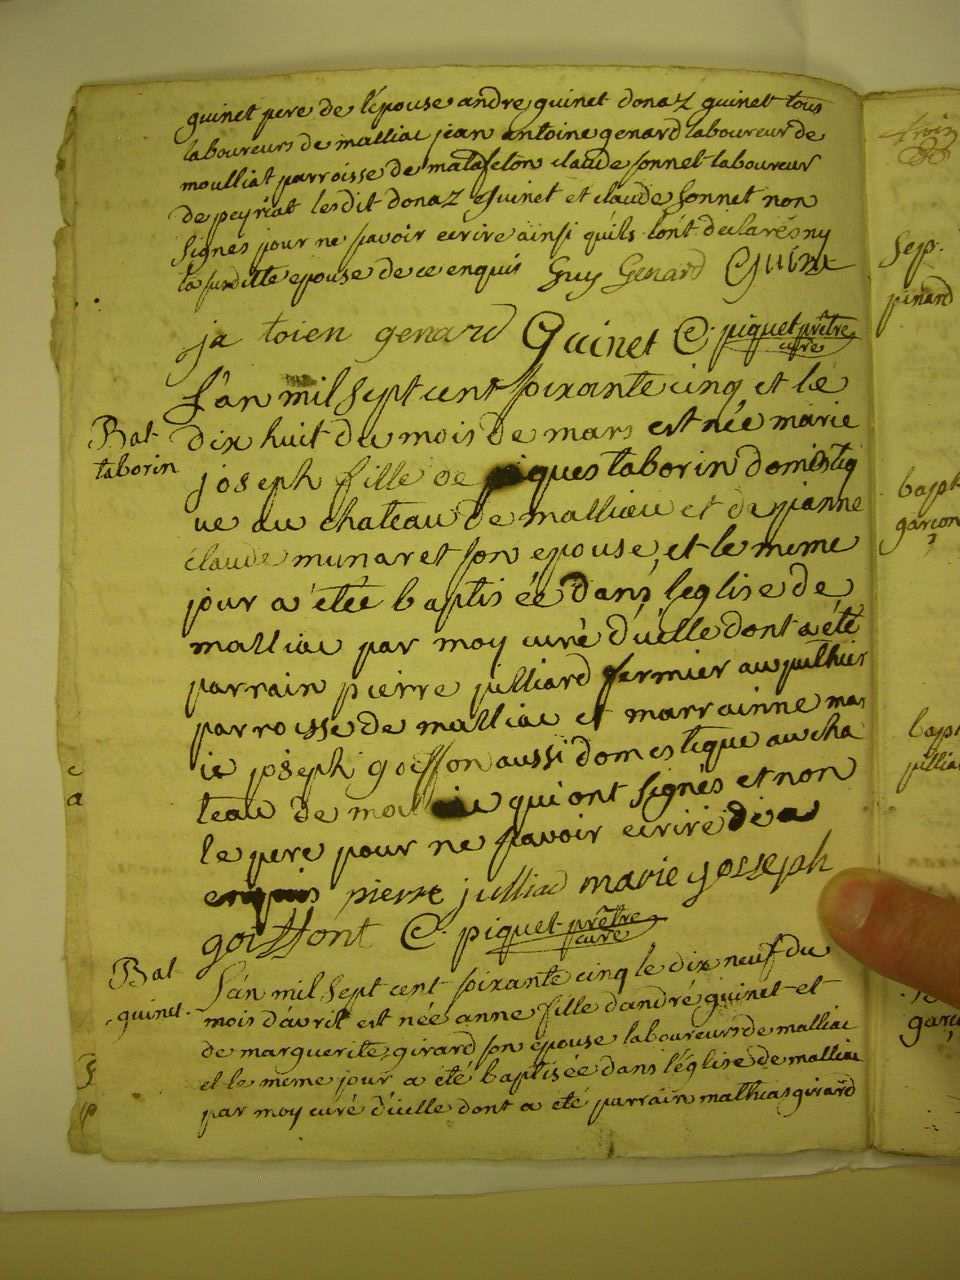 guinet pere de l'épouse andre guinet donaz guinet tous
laboureurs de malliac jean antoine genard laboureur de
moulliat parroisse de matafelon claude sonnet laboureur
de peyriat lesdit donaz guinet et claude sonnet non
signés pour ne savoir ecrire ainsi qu'ils lont declarés ny
la susditte epouse de ce enquis Guy Genard Guinet
genard Guinet C. piquet prêtre
curé
L'an mil sept cent soixante cinq et le
Bat
dix huit du mois de mars est née marie
taborin
joseph fille de jaques taborin domestiq
ue au chateau de mallieu et de jianne
claude munaret son epouse, et le meme
jour a étée baptisée dans l'eglise de
malliac par moy curé d'icelle dont a été
parrain pierre julliard fermier au
parroisse de malliac et marrainne mar
ie joseph goiffon aussi domestique au cha
teau de qui ont signés et non
le pere pour ne savoir ecrire de ce
enquis pierre julliad marie josseph
goiffont C. piquet prêtre
curé
Bat
L'an mil sept cent soixante cinq le dix neuf du
guinet
mois d'avril est née anne fille d'andré guinet et
de marguerite girard son epouse laboureurs de malliac
et le meme jour a été baptisée dans l'église de malliac
par moy curé d'icelle dont a été parrain mathieas girard
Sep.
pinard
bapt
garçon
bapt
julliar
garç